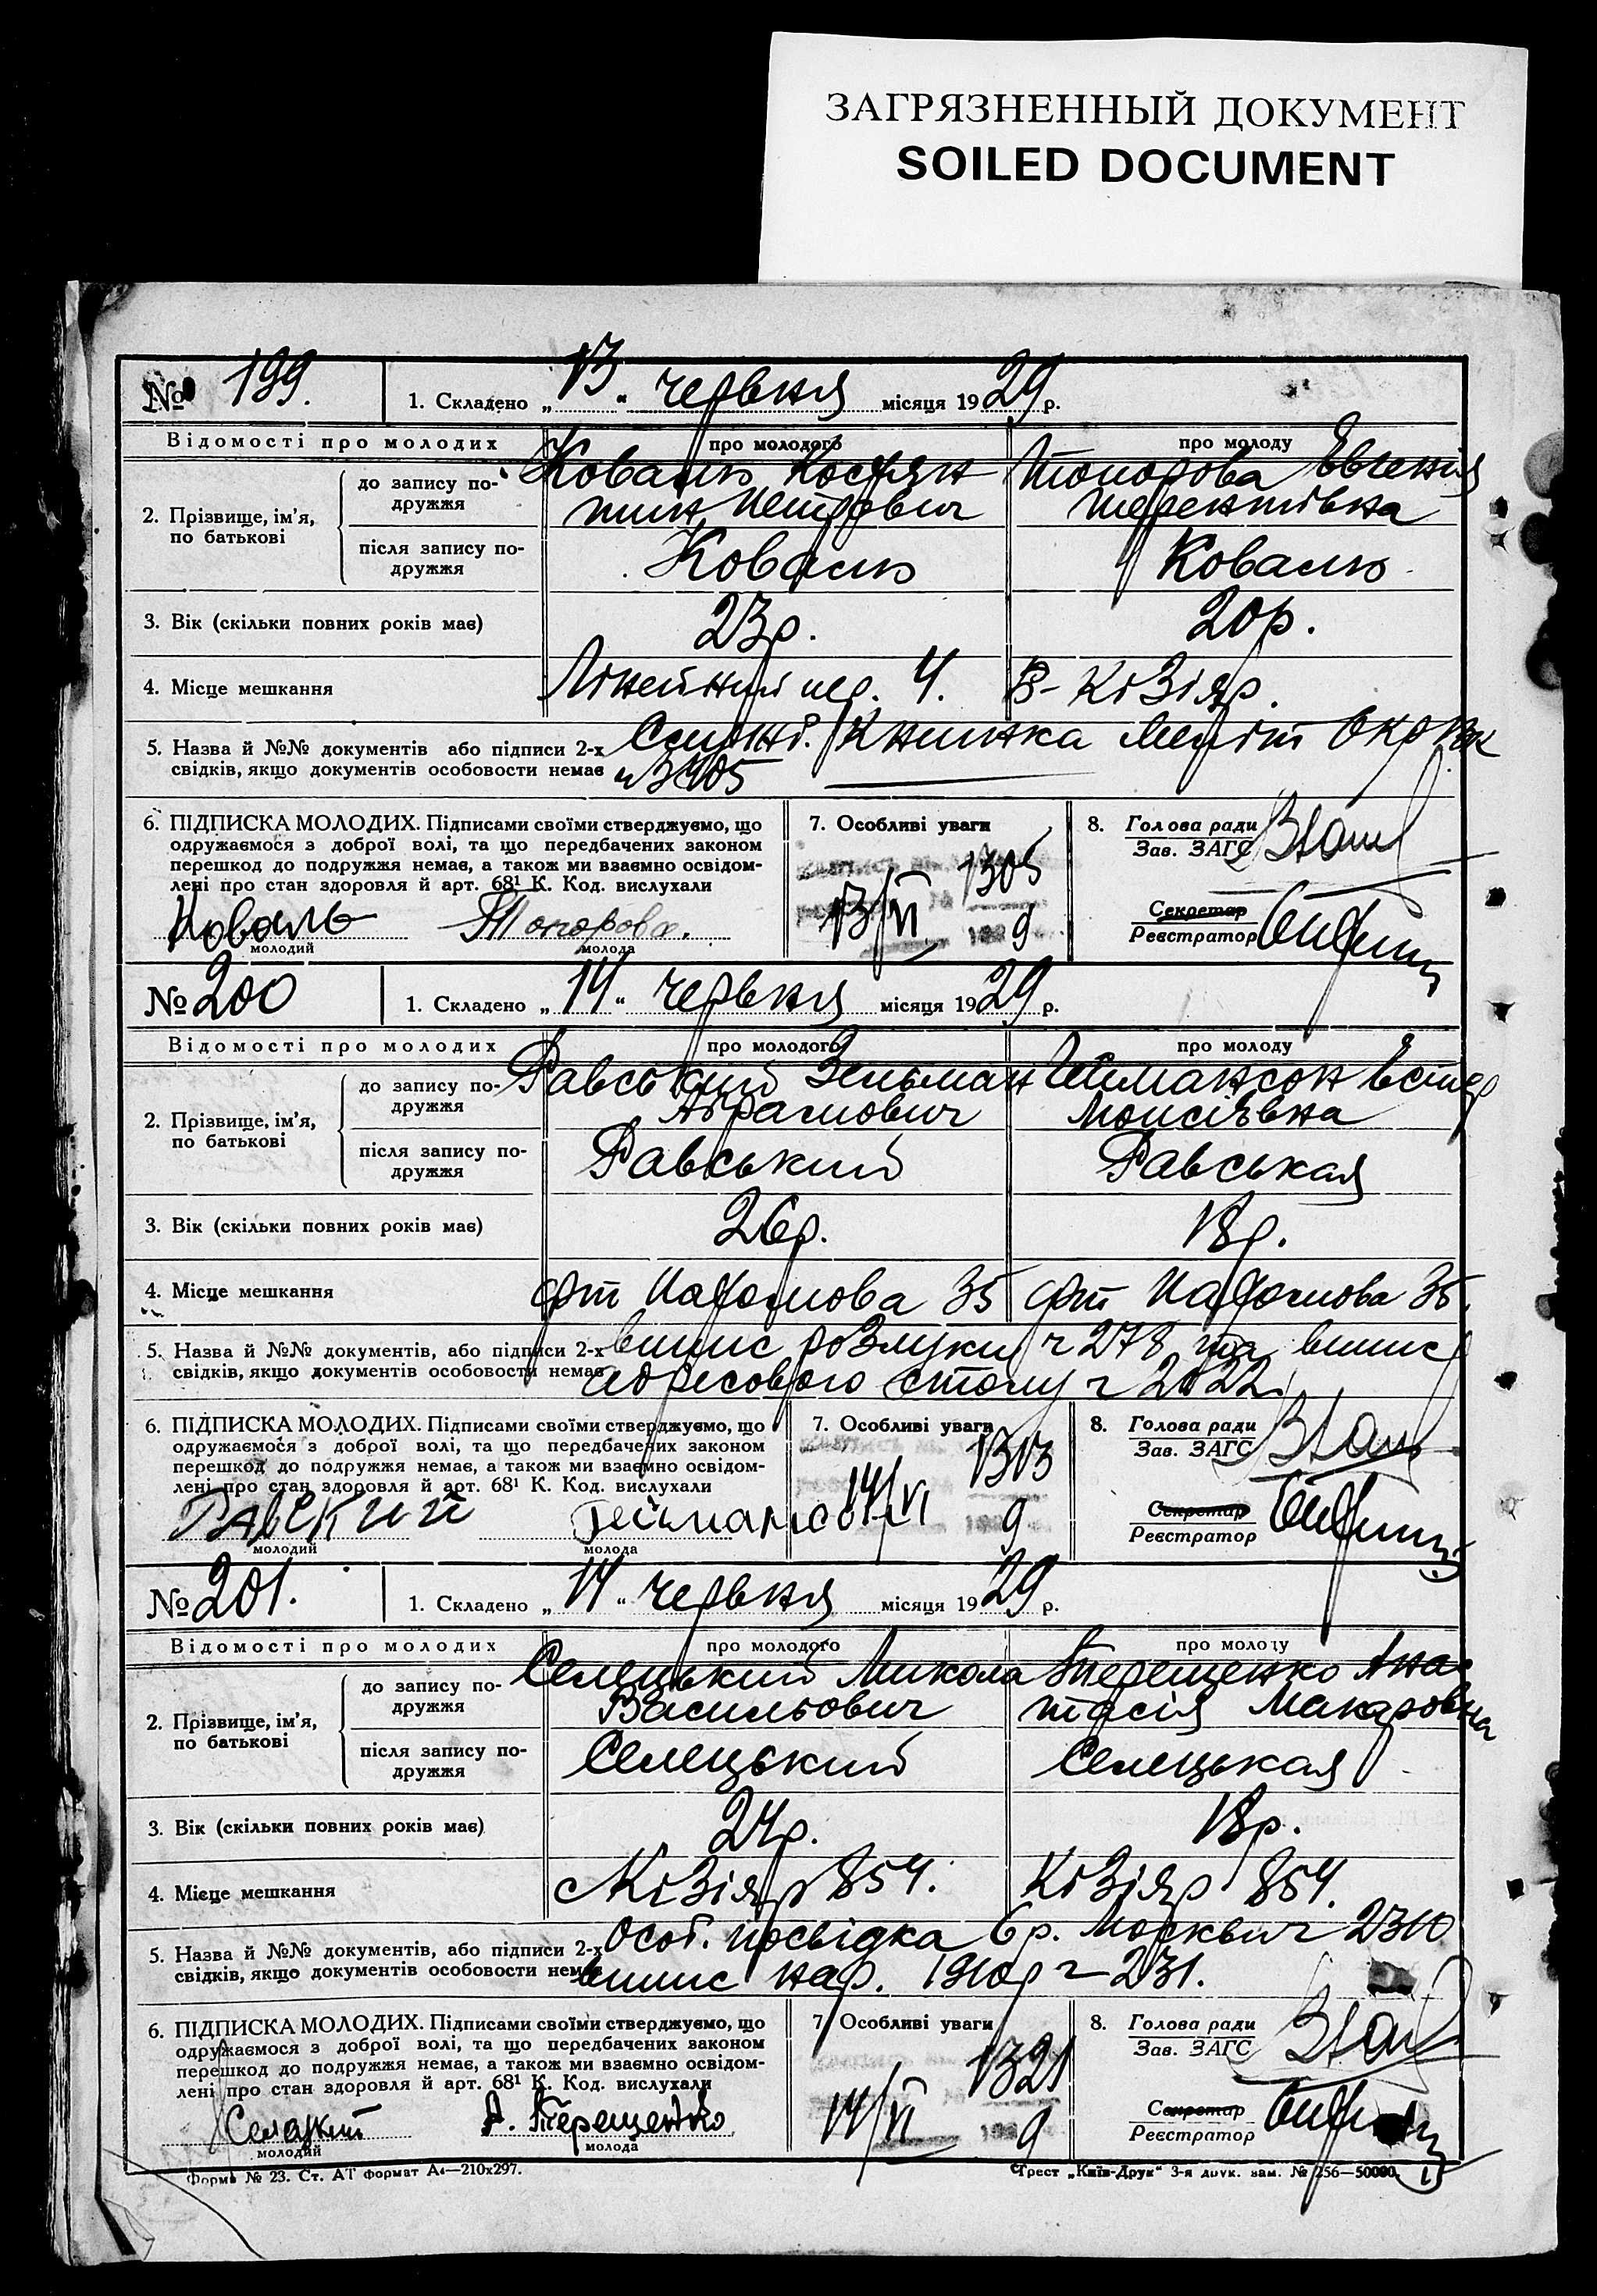 ЗАГРЯЗНЕННЫЙ ДОКУМЕНТ
SOILED DOCUMENT
№ 199. 1. Складено „13“ червня місяця 1929 р.
Відомості про молодих про молодого про молоду
2. Прізвище, ім’я, по батькові
до запису подружжя Коваль Костян Топорова Евгенія
тин Петрович Терентівна
після запису подружжя Коваль Коваль
3. Вік (скільки повних років має) 23р. 20р.
4. Місце мешкання Лінейний пер. 4. В-Кізіяр.
5. Назва й №№ документів або підписи 2-х книжка Меліт
свідків, якщо документів особовости немає
6. ПІДПИСКА МОЛОДИХ. Підписами своїми стверджуємо, що
одружаємося з доброї волі, та що передбачених законом
перешкод до подружжя немає, а також ми взаємно освідом-
лені про стан здоровля й арт. 68¹ К. Код. вислухали
Коваль Топорова.
молодий молода
7. Особливі уваги
1305
13/VI 9
8. Голова ради
Зав. ЗАГС
Секретар
Реєстратор
№ 200 1. Складено „14“ червня місяця 1929 р.
Відомості про молодих про молодого про молоду
2. Прізвище, ім’я, по батькові
до запису подружжя Равський Зельман Геймансон Естер
Абрамович Мойсіевна
після запису подружжя Равський Равськая
3. Вік (скільки повних років має) 26р. 18р.
4. Місце мешкання 35 35.
5. Назва й №№ документів, або підписи 2-х випис розлуки ч 278 та випис
свідків, якщо документів особовости немає адресового столу ч 2022.
6. ПІДПИСКА МОЛОДИХ. Підписами своїми стверджуємо, що
одружаємося з доброї волі, та що передбачених законом
перешкод до подружжя немає, а також ми взаємно освідом-
лені про стан здоровля й арт. 68¹ К. Код. вислухали
Равский Геймансон
молодий молода
7. Особливі уваги
1313
14/VI 9
8. Голова ради
Зав. ЗАГС
Секретар
Реєстратор
№ 201. 1. Складено „14“ червня місяця 1929 р.
Відомості про молодих про молодого про молоду
2. Прізвище, ім’я, по батькові
до запису подружжя Селецький Микола Терещенко Анас
Васильович тасія Макаровна
після запису подружжя Селецький Селецькая
3. Вік (скільки повних років має) 24р. 18р.
4. Місце мешкання Кізіяр 854. Кізіяр 854.
5. Назва й №№ документів, або підписи 2-х особ. посвідка ч 2310
свідків, якщо документів особовости немає випис нар. 1910р ч 231.
6. ПІДПИСКА МОЛОДИХ. Підписами своїми стверджуємо, що
одружаємося з доброї волі, та що передбачених законом
перешкод до подружжя немає, а також ми взаємно освідом-
лені про стан здоровля й арт. 68¹ К. Код. вислухали
А. Терещенко
молодий молода
7. Особливі уваги
1321
14/VI 9
8. Голова ради
Зав. ЗАГС
Секретар
Реєстратор
Форма № 23. Ст. АТ формат А4—210x297. Трест „Київ-Друк“ 3-я друк. зам. № 256—50000.